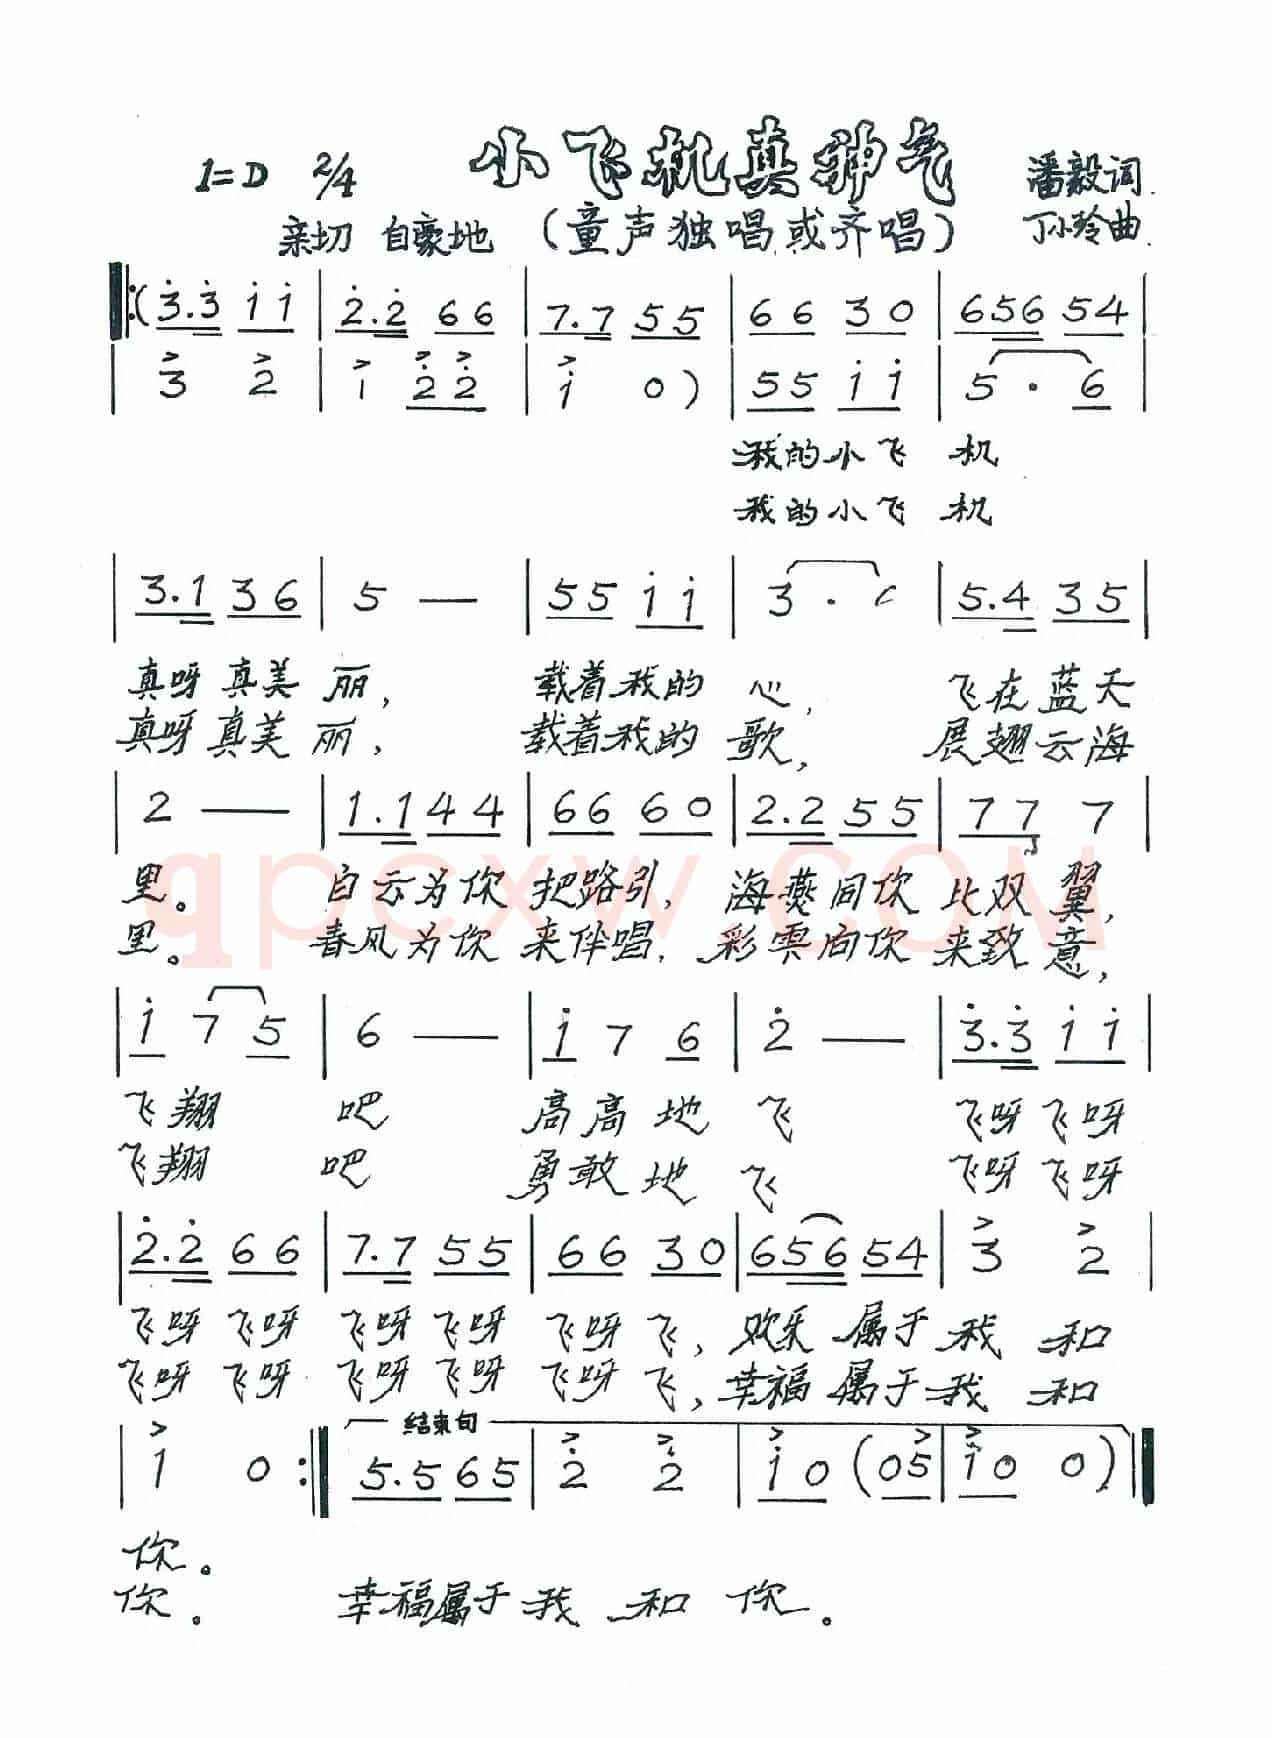 小飞机真神气
1=D 2/4 潘毅词
亲切 自豪地 (童声独唱或齐唱) 丁小玲曲
‖:(3̇.3̇ 1̇1̇ | 2̇.2̇ 66 | 7.7 55 | 66 30 | 656 54 |
| 3 2 | 1 2̇2̇ | 1̇ 0) | 55 1̇1̇ | 5 · 6 |
我的小飞 机
我的小飞 机
| 3.1 36 | 5 — | 55 1̇1̇ | 3 · | 5.4 35 |
真呀真美 丽, 载着我的 心, 飞在蓝天
真呀真美 丽, 载着我的 歌, 展翅云海
| 2 — | 1.1 44 | 66 60 | 2.2 55 | 77 7 |
里。 白云为你 把路引, 海燕同你 比双翼,
里。 春风为你 来伴唱, 彩雲向你 来致意,
| 1̇ 7 5 | 6 — | 1̇ 7 6 | 2̇ — | 3̇.3̇ 1̇1̇ |
飞翔 吧 高高地 飞 飞呀飞呀
飞翔 吧 勇敢地 飞 飞呀飞呀
| 2̇.2̇ 66 | 7.7 55 | 66 30 | 656 54 | 3 2 |
飞呀飞呀 飞呀飞呀 飞呀飞, 欢乐属于 我 和
飞呀飞呀 飞呀飞呀 飞呀飞, 幸福属于 我 和
结束句
| 1 0 :‖ 5.5 65 | 2̇ 2̇ | 1̇0 (05 | 1̇0 0) ‖
你。
你。 幸福属于 我 和 你。
qpcxw.COM